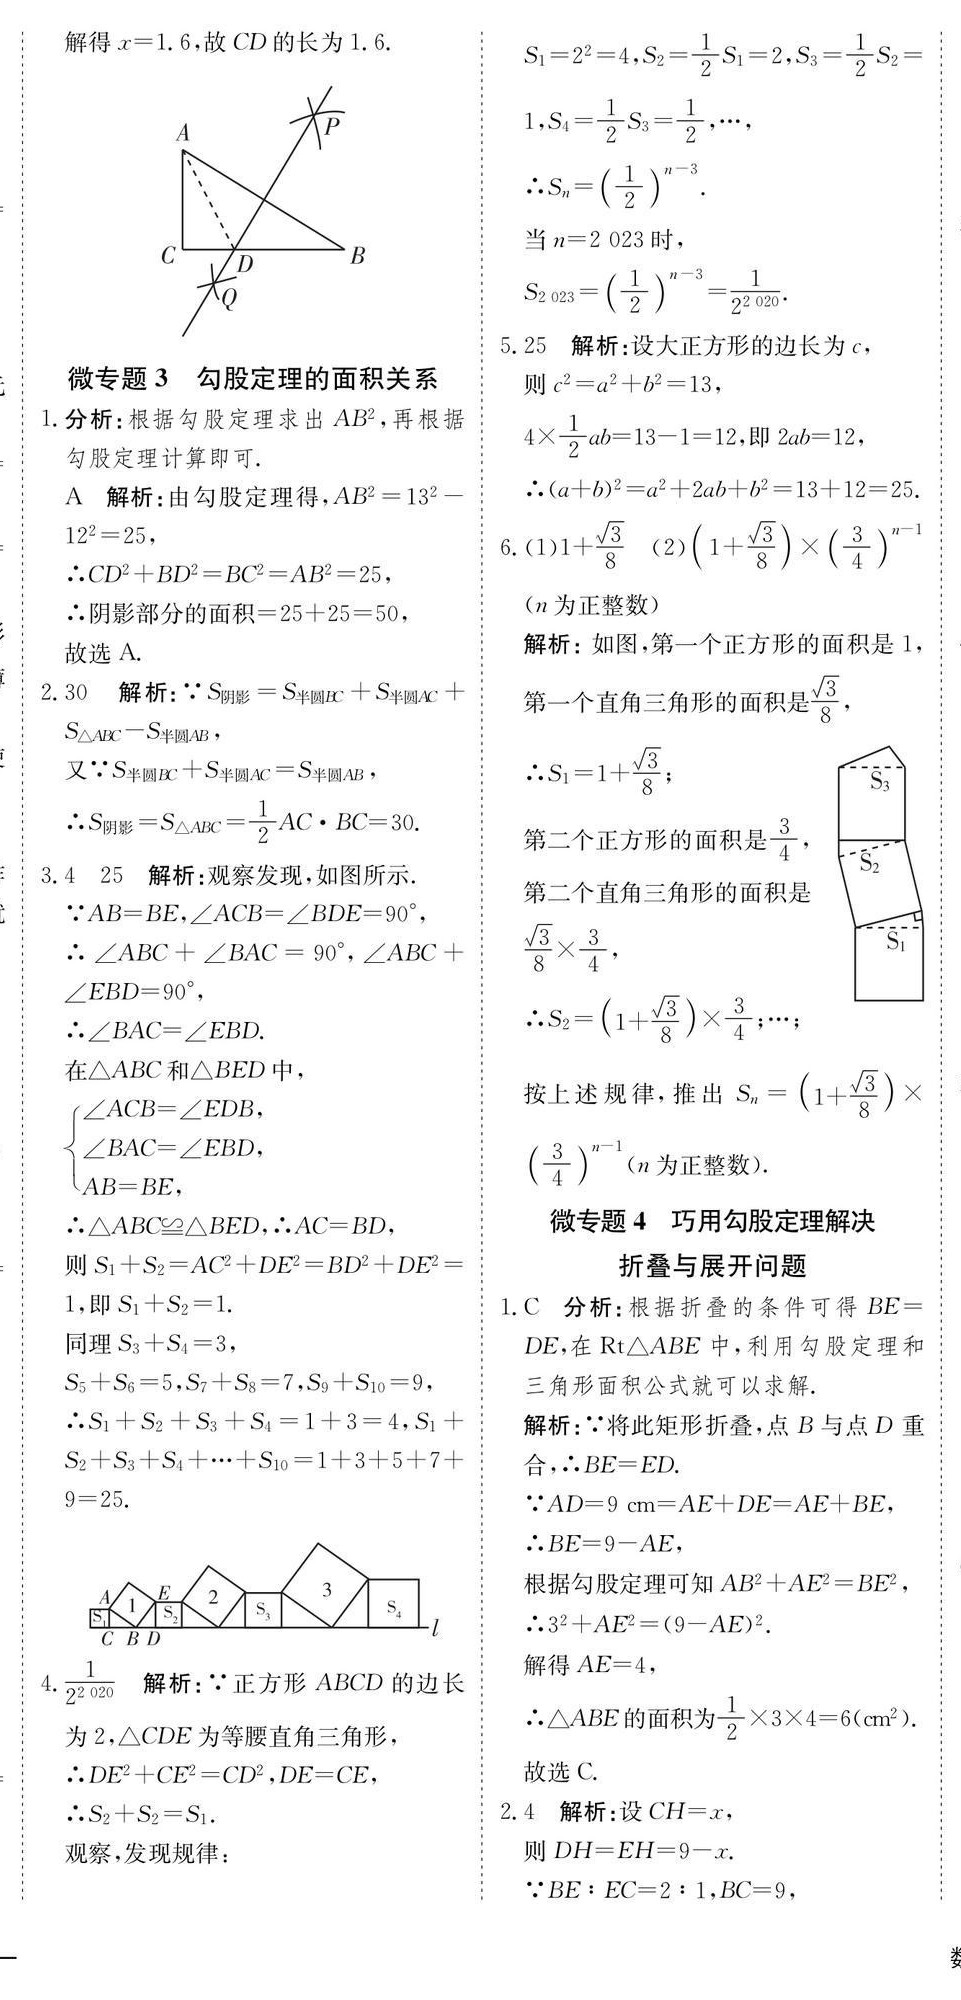 解得 x=1.6,故 CD 的长为 1.6.
P
A
C
D
B
Q
微专题 3 勾股定理的面积关系
1. 分析:根据勾股定理求出 AB²,再根据
勾股定理计算即可.
A 解析:由勾股定理得,AB²=13²−
12²=25,
∴CD²+BD²=BC²=AB²=25,
∴阴影部分的面积=25+25=50,
故选 A.
2. 30 解析:∵S阴影=S半圆BC+S半圆AC+
S△ABC−S半圆AB,
又∵S半圆BC+S半圆AC=S半圆AB,
∴S阴影=S△ABC=1/2 AC·BC=30.
3. 4 25 解析:观察发现,如图所示.
∵AB=BE,∠ACB=∠BDE=90°,
∴∠ABC+∠BAC=90°,∠ABC+
∠EBD=90°,
∴∠BAC=∠EBD.
在△ABC 和△BED 中,
∠ACB=∠EDB,
∠BAC=∠EBD,
AB=BE,
∴△ABC≌△BED,∴AC=BD,
则 S₁+S₂=AC²+DE²=BD²+DE²=
1,即 S₁+S₂=1.
同理 S₃+S₄=3,
S₅+S₆=5,S₇+S₈=7,S₉+S₁₀=9,
∴S₁+S₂+S₃+S₄=1+3=4,S₁+
S₂+S₃+S₄+⋯+S₁₀=1+3+5+7+
9=25.
A 1 E 2 3
S₁ S₂ S₃ S₄
C B D l
4. 1/2^2 020 解析:∵正方形 ABCD 的边长
为 2,△CDE 为等腰直角三角形,
∴DE²+CE²=CD²,DE=CE,
∴S₂+S₂=S₁.
观察,发现规律:
S₁=2²=4,S₂=1/2 S₁=2,S₃=1/2 S₂=
1,S₄=1/2 S₃=1/2,⋯,
∴Sₙ=(1/2)^(n−3).
当 n=2 023 时,
S₂ ₀₂₃=(1/2)^(n−3)=1/2^2 020.
5. 25 解析:设大正方形的边长为 c,
则 c²=a²+b²=13,
4×1/2 ab=13−1=12,即 2ab=12,
∴(a+b)²=a²+2ab+b²=13+12=25.
6. (1)1+√3/8 (2)(1+√3/8)×(3/4)^(n−1)
(n 为正整数)
解析:如图,第一个正方形的面积是 1,
第一个直角三角形的面积是√3/8,
∴S₁=1+√3/8;
第二个正方形的面积是3/4,
第二个直角三角形的面积是
√3/8×3/4,
∴S₂=(1+√3/8)×3/4;⋯;
S₃
S₂
S₁
按上述规律,推出 Sₙ=(1+√3/8)×
(3/4)^(n−1)(n 为正整数).
微专题 4 巧用勾股定理解决
折叠与展开问题
1. C 分析:根据折叠的条件可得 BE=
DE,在 Rt△ABE 中,利用勾股定理和
三角形面积公式就可以求解.
解析:∵将此矩形折叠,点 B 与点 D 重
合,∴BE=ED.
∵AD=9 cm=AE+DE=AE+BE,
∴BE=9−AE,
根据勾股定理可知 AB²+AE²=BE²,
∴3²+AE²=(9−AE)².
解得 AE=4,
∴△ABE 的面积为1/2×3×4=6(cm²).
故选 C.
2. 4 解析:设 CH=x,
则 DH=EH=9−x.
∵BE∶EC=2∶1,BC=9,